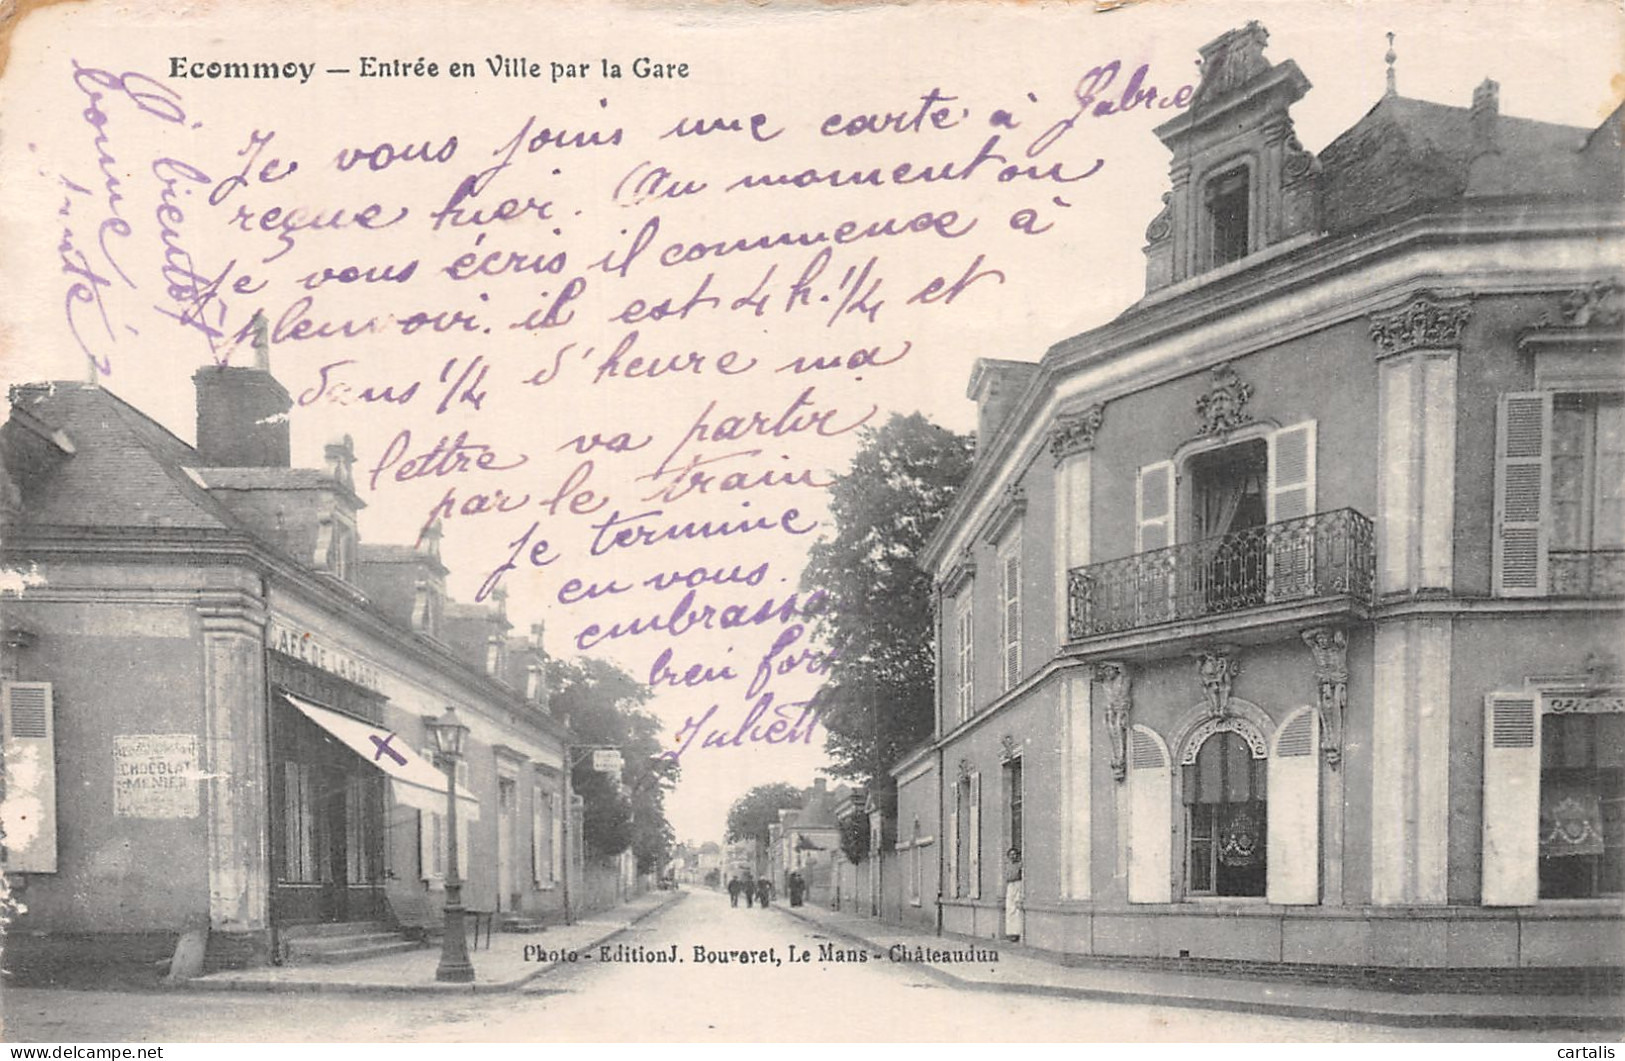 Ecommoy — Entrée en Ville par la Gare
Je vous joins une carte à Gabrie
reçue hier. Au moment ou
je vous écris il commence à
pleuvoir. il est 4 h. 1/4 et
dans 1/4 d'heure ma
lettre va partir
par le train
Je termine
en vous
embrassa
bien fort
Juliett
à bientôt
bonne
santé
CAFÉ DE LA GARE
CHOCOLAT
MENIER
Photo - Edition J. Bouveret, Le Mans - Châteaudun
cartalis